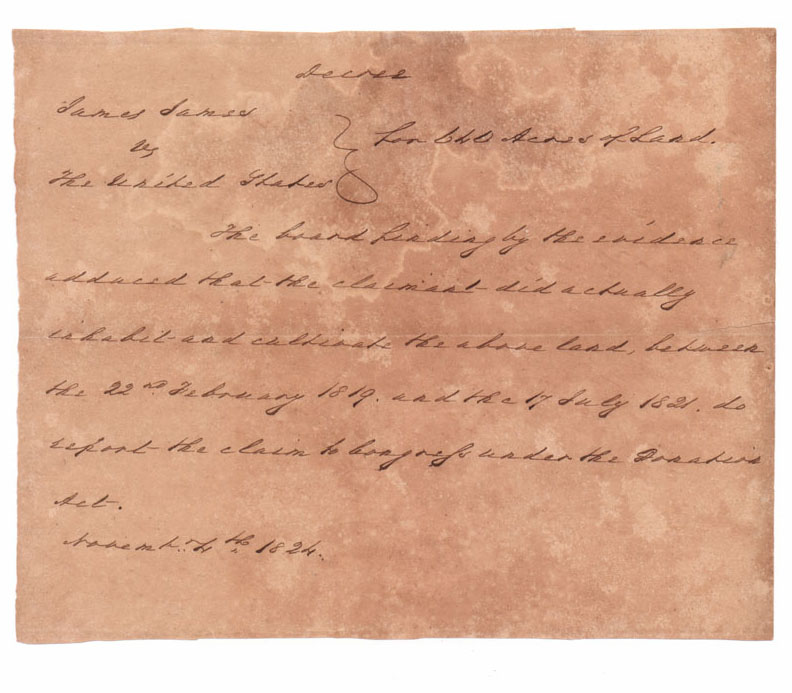 Decree
James James
vs
The United States
for 640 Acres of Land.
The board finding by the evidence
adduced that the claimant did actually
inhabit and cultivate the above land, between
the 22nd February 1819. and the 17 July 1821. do
report the claim to Congress under the Donation
Act.
Novembr. 4th 1824.